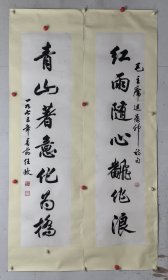 毛主席送瘟神诗句
红雨隨心翻作浪
青山著意化为橋
一九七五年 任政